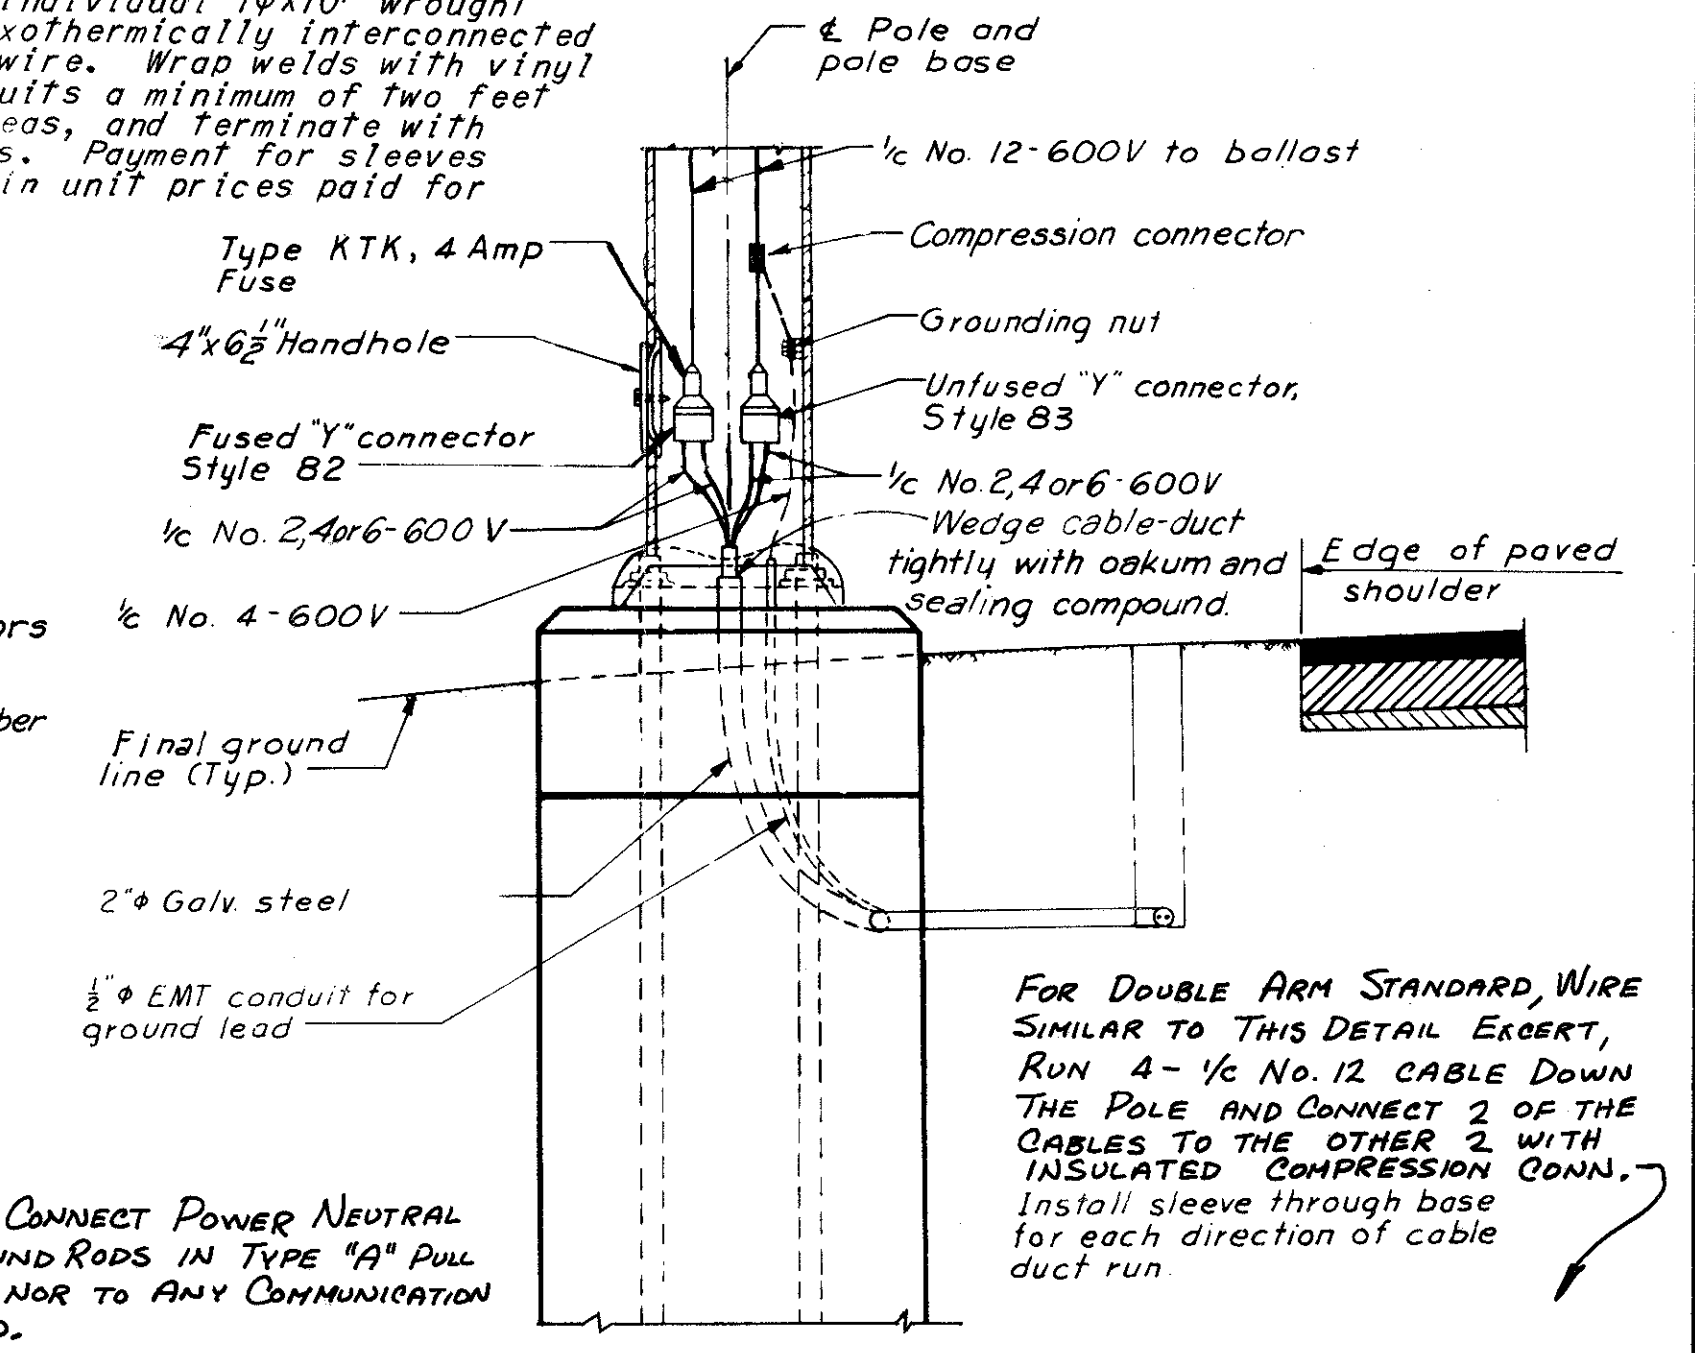 individual 1"φx10' wrought
exothermically interconnected
wire. Wrap welds with vinyl
uits a minimum of two feet
eas, and terminate with
s. Payment for sleeves
in unit prices paid for
℄ Pole and
pole base
1/c No. 12-600V to ballast
Compression connector
Type KTK, 4 Amp
Fuse
Grounding nut
4"x6½" Handhole
Unfused "Y" connector,
Style 83
Fused "Y" connector
Style 82
1/c No. 2,4 or 6-600V
1/c No. 2,4 or 6-600V
Wedge cable-duct
tightly with oakum and
sealing compound.
Edge of paved
shoulder
1/c No. 4-600V
ors
ber
Final ground
line (Typ.)
2"φ Galv. steel
½"φ EMT conduit for
ground lead
FOR DOUBLE ARM STANDARD, WIRE
SIMILAR TO THIS DETAIL EXCERT,
RUN 4- 1/c No. 12 CABLE DOWN
THE POLE AND CONNECT 2 OF THE
CABLES TO THE OTHER 2 WITH
INSULATED COMPRESSION CONN.
Install sleeve through base
for each direction of cable
duct run.
CONNECT POWER NEUTRAL
UND RODS IN TYPE "A" PULL
NOR TO ANY COMMUNICATION
D.